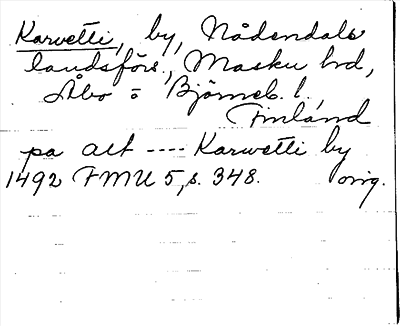 Karvetti, by, Nådendals
landsförs., Masku hd,
Åbo o Björneb. l.,
Finland
pa alt ---- Karwetti by
1492 FMU 5, s. 348. orig.